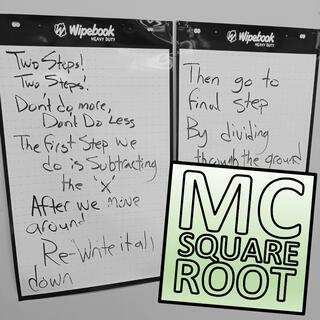 Wipebook
HEAVY DUTY
Two Steps!
Two Steps!
Don't do more,
Don't Do Less
The first Step we
do is Subtracting
the 'x'
After we move
around
Re-write it all
down
Wipebook
HEAVY DUTY
Then go to
final step
By dividing
through the ground
MC
SQUARE
ROOT